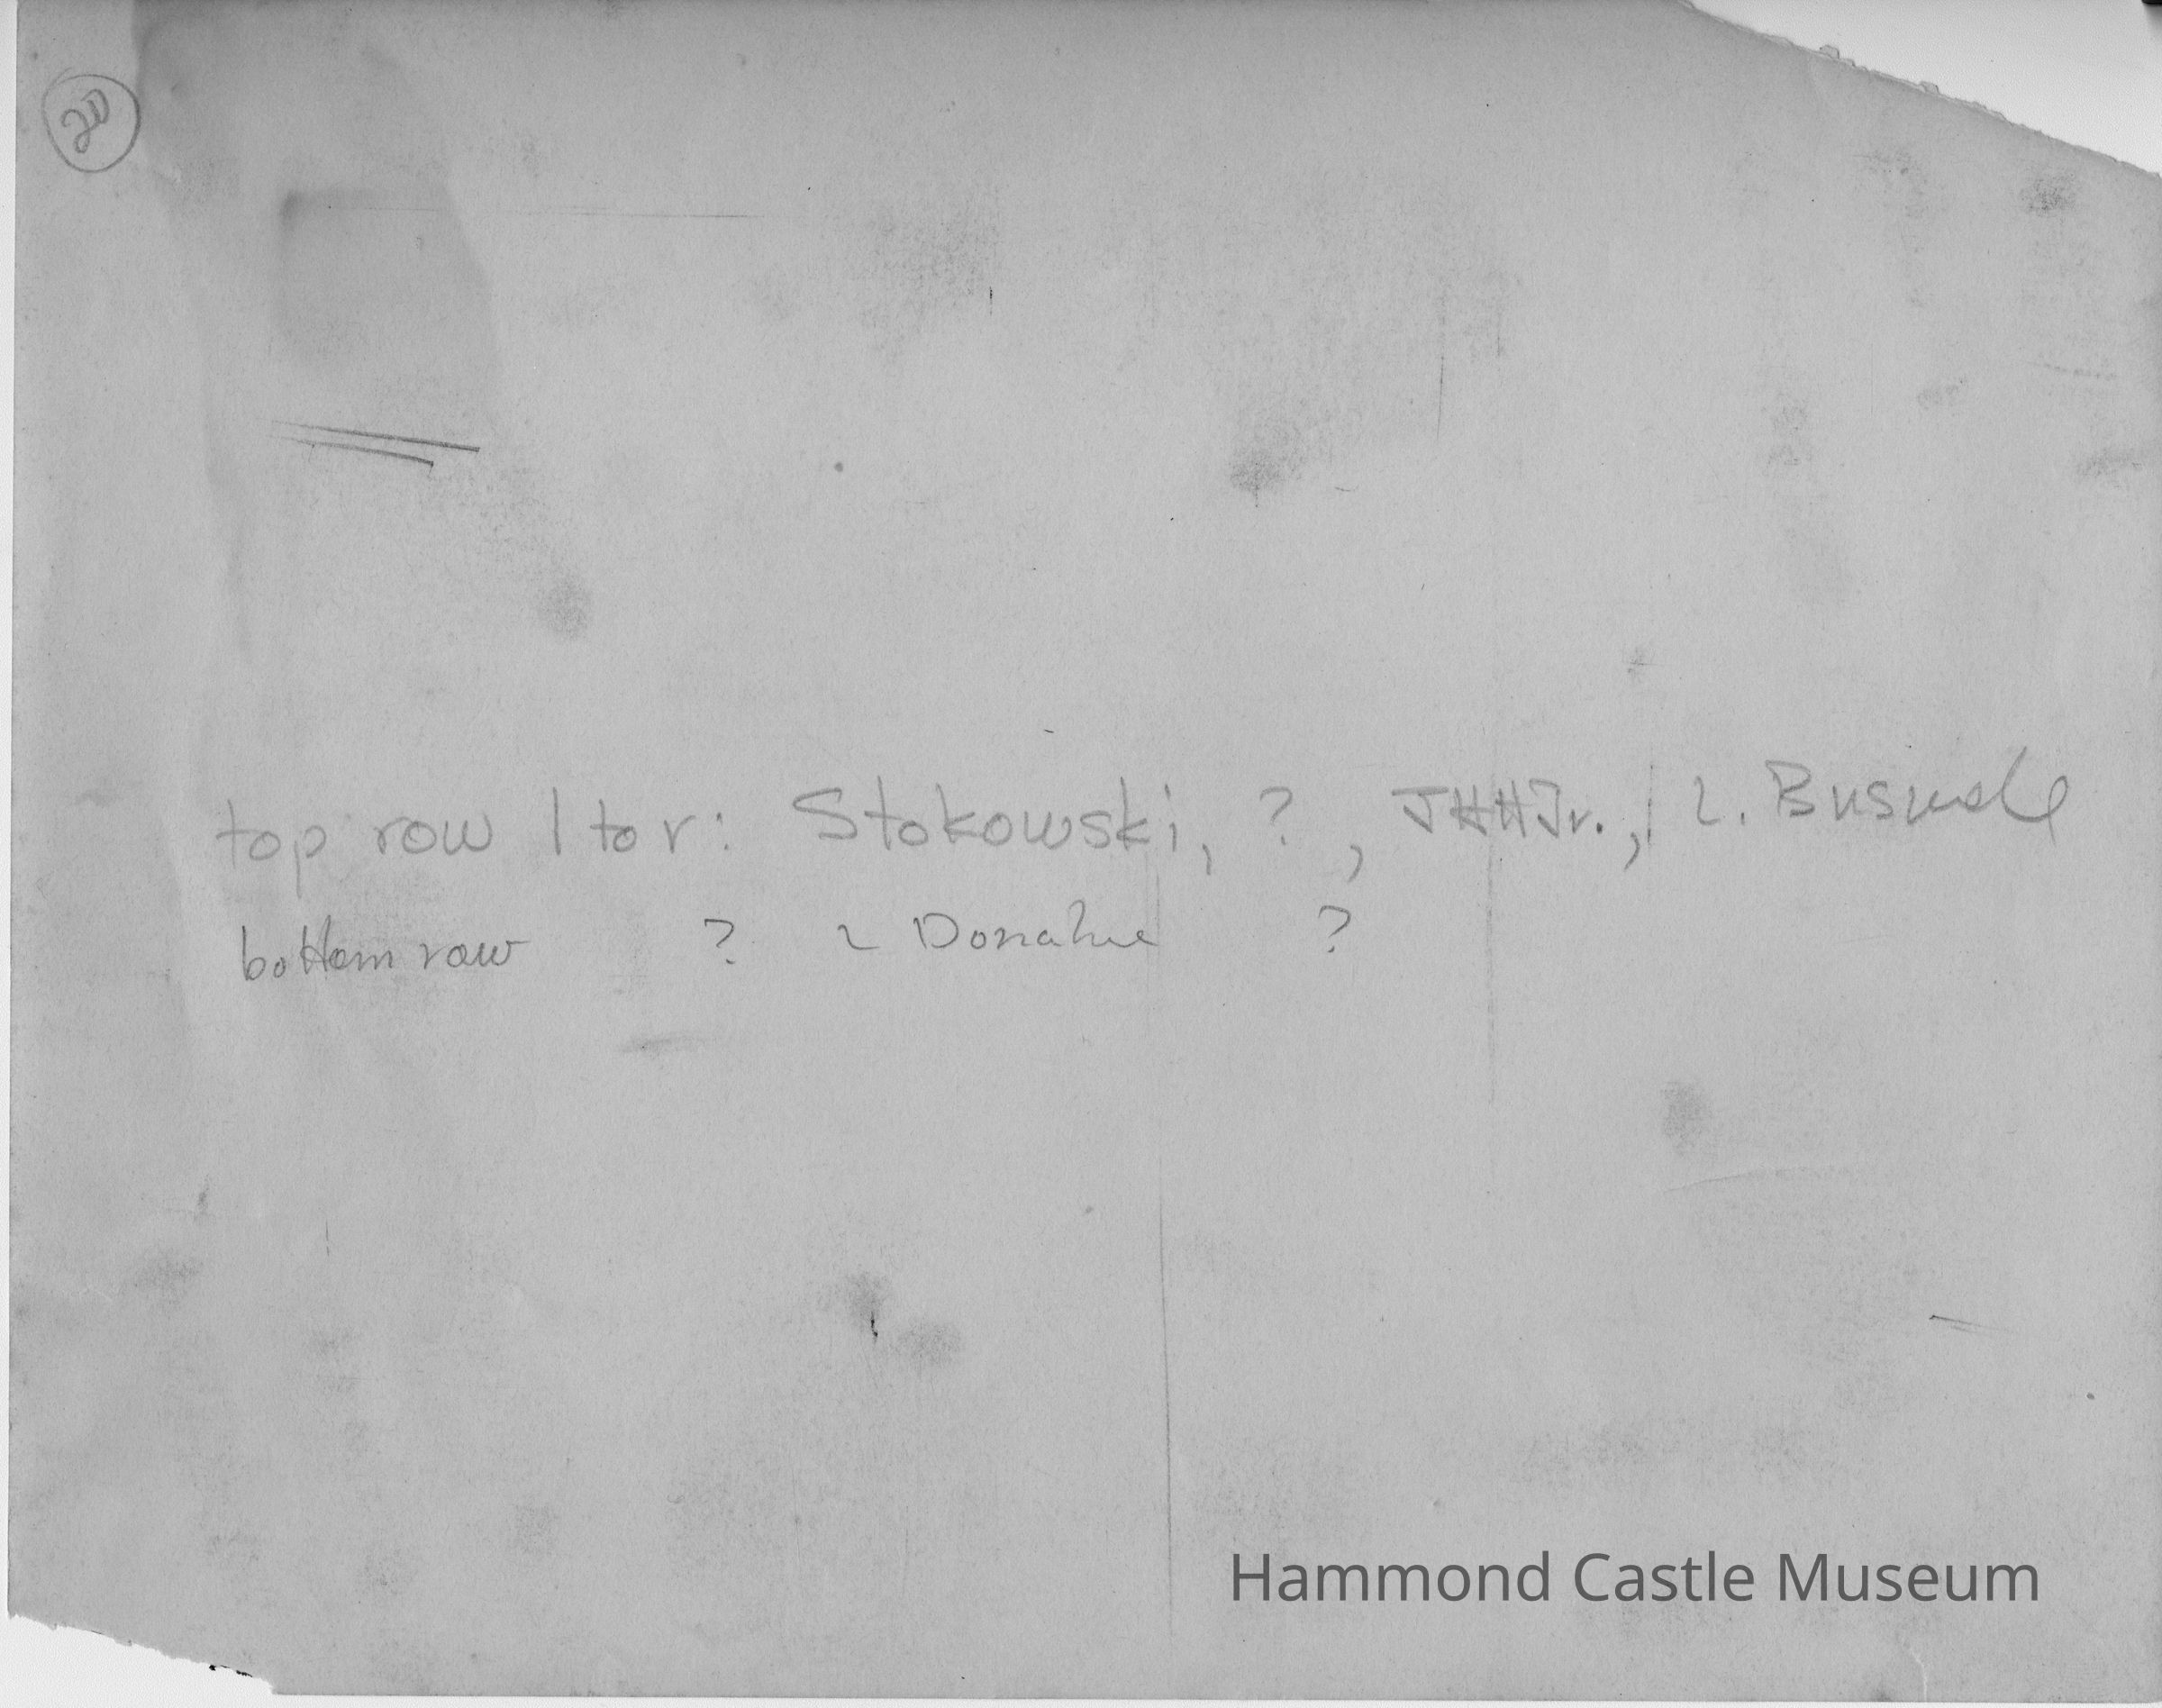 20
top row l to r: Stokowski, ?, JHHJr., L. Busnell
bottom row ? L Donahue ?
Hammond Castle Museum